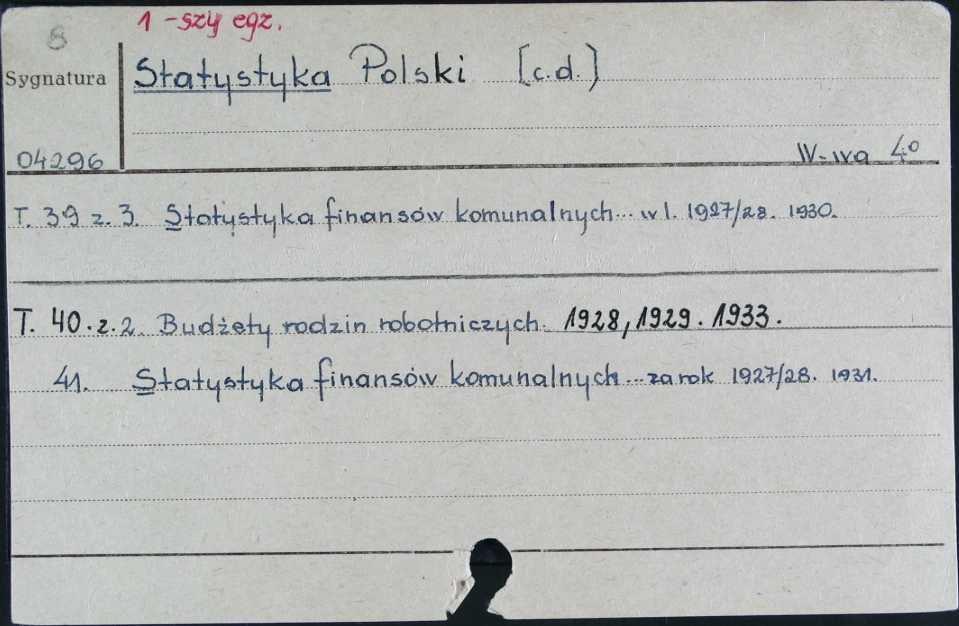 8
1-szy egz.
Sygnatura
Statystyka Polski [c.d.]
04296
W-wa 4°
T. 39 z. 3. Statystyka finansów komunalnych... w l. 1927/28. 1930.
T. 40. z. 2. Budżety rodzin robotniczych. 1928, 1929. 1933.
41. Statystyka finansów komunalnych... za rok 1927/28. 1931.